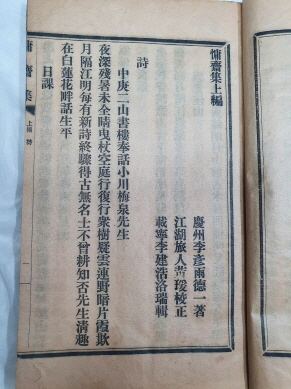 慵齋集上編
慶州李彥雨德一著
江湖旅人菁瑗校正
載寧李建浩洛瑞輯
詩
中庚二山書樓奉話小川梅泉先生
夜深殘暑未全晴曳杖空庭行復行衆樹疑雲連野暗片霞欺
月隔江明每有新詩終驟得古無名士不曾耕知否先生清趣
在白蓮花畔話生平
日課
慵齋集
上編 詩